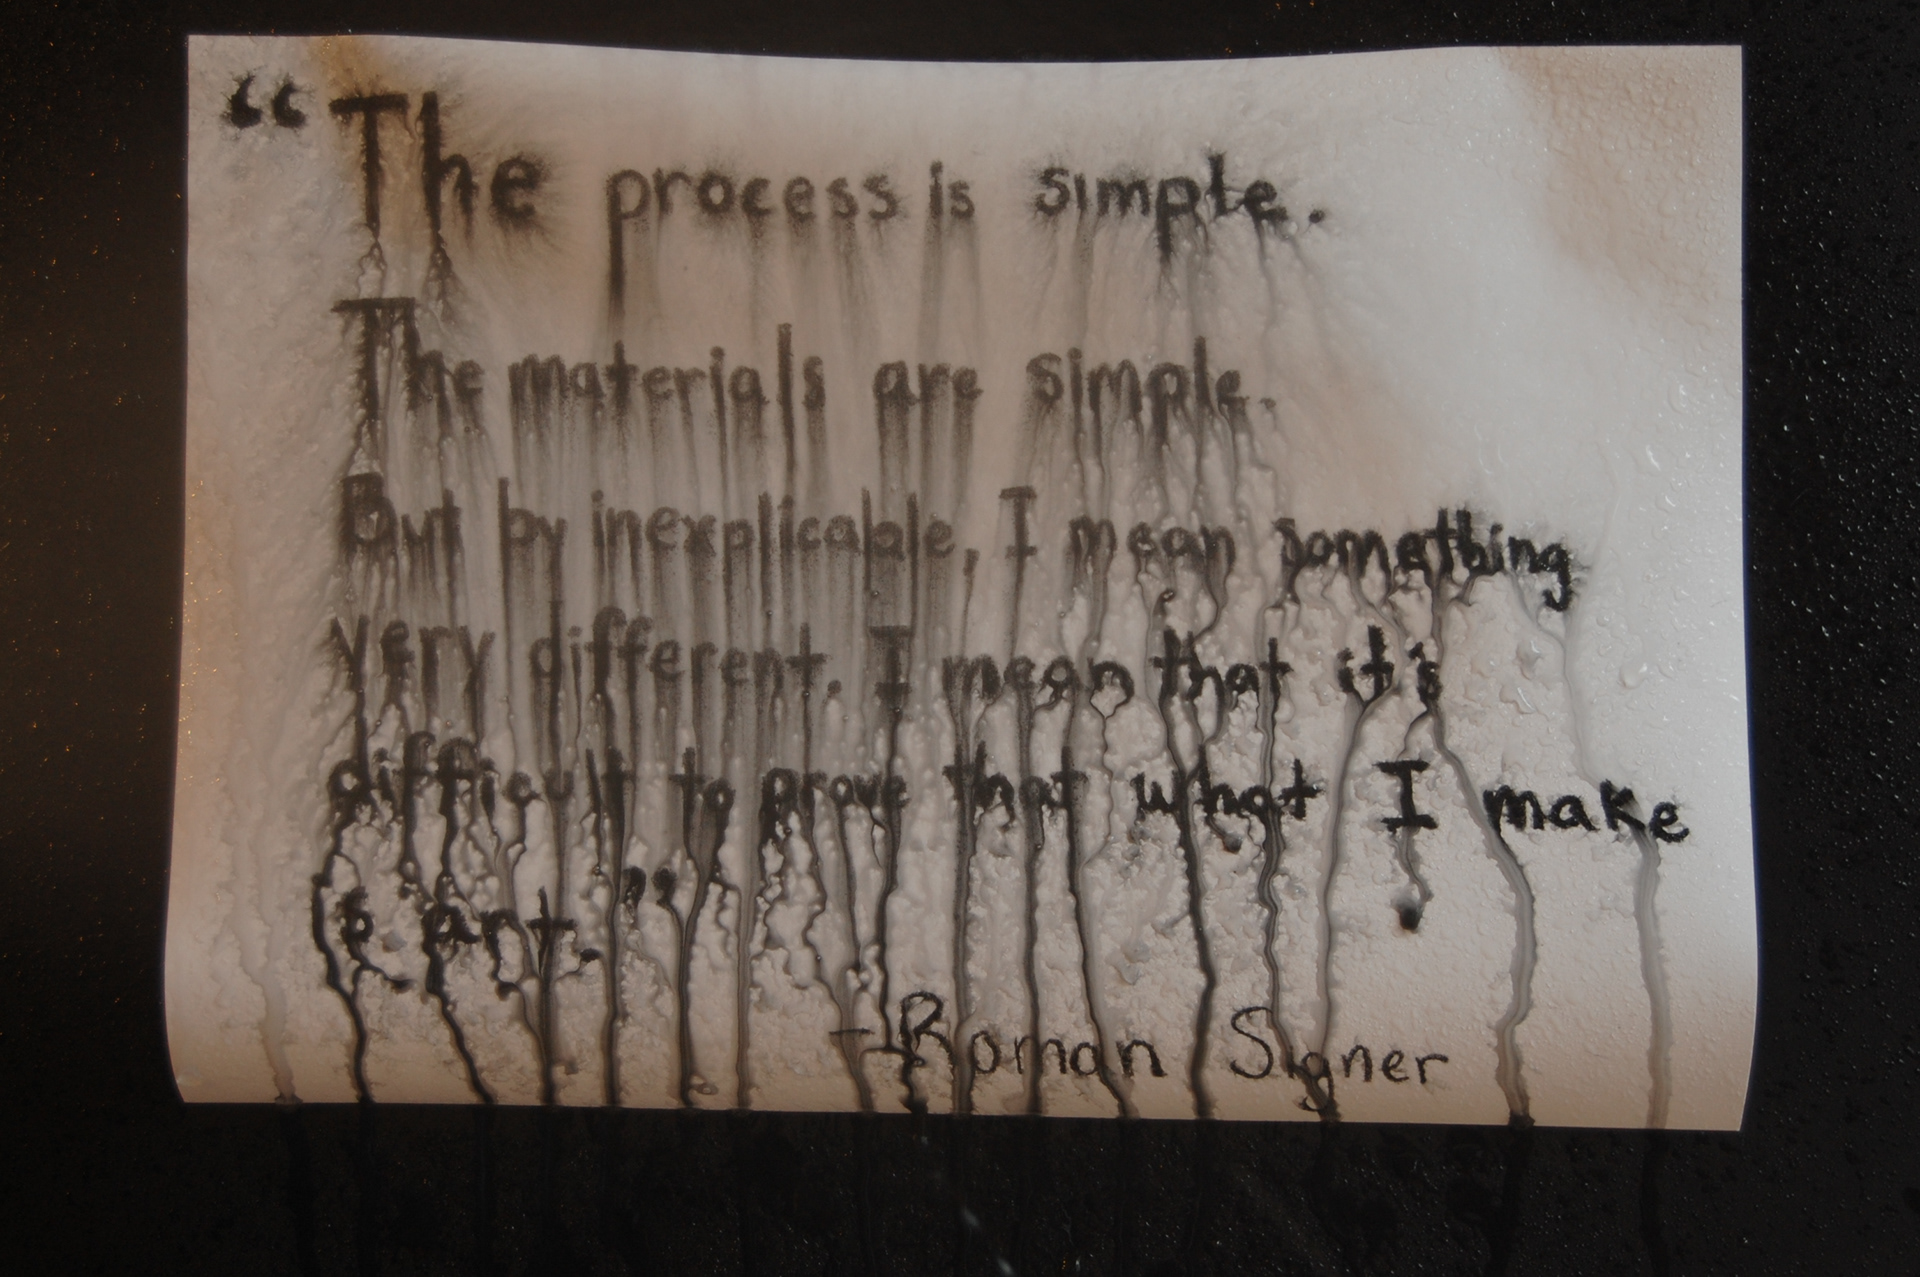 “The process is simple.
The materials are simple.
But by inexplicable, I mean something
very different. I mean that it's
difficult to prove that what I make
is art.”
-Roman Signer